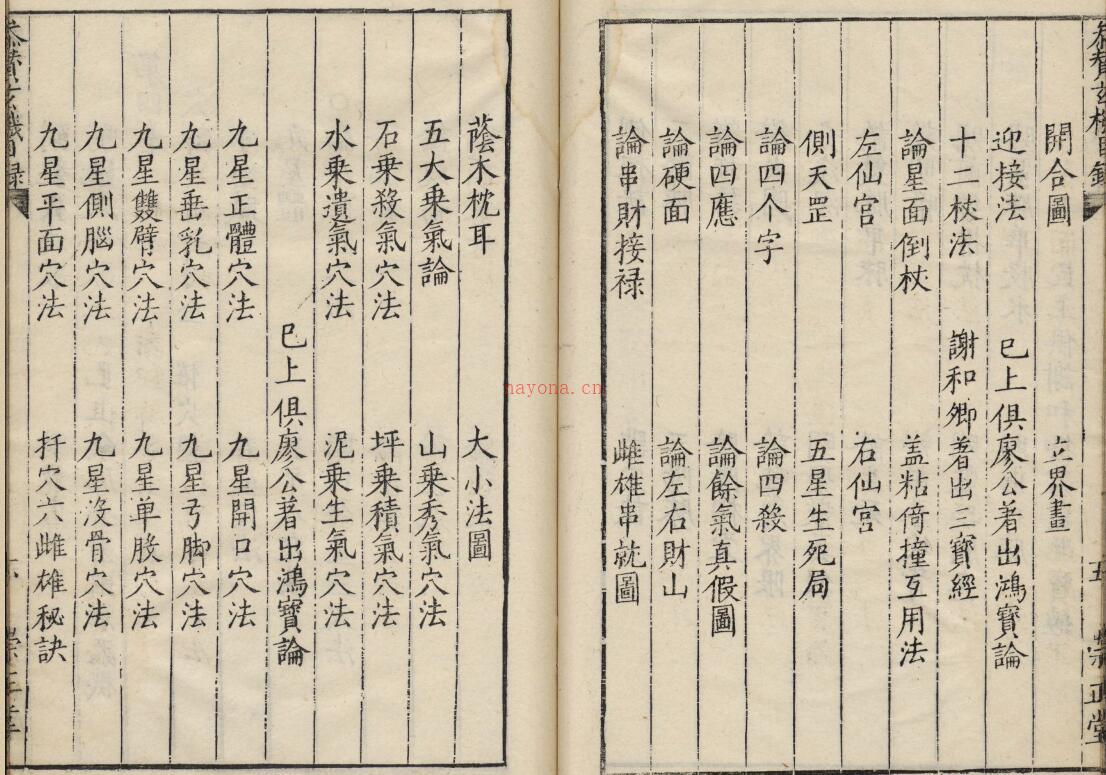 參贊玄機目錄 五 崇正堂
開合圖 立界畫
迎接法 巳上俱廖公著出鴻寶論
十二杖法 謝和卿著出三寶經
論星面倒杖 盖粘倚撞互用法
左仙宮 右仙宮
側天罡 五星生死局
論四个字 論四殺
論四應 論餘氣真假圖
論硬面 論左右財山
論串財接禄 雌雄串就圖
蔭木枕耳 大小法圖
五大乗氣論 山乗秀氣穴法
石乗殺氣穴法 坪乗積氣穴法
水乗遺氣穴法 泥乗生氣穴法
巳上俱廖公著出鴻寶論
九星正體穴法 九星開口穴法
九星垂乳穴法 九星弓脚穴法
九星雙臂穴法 九星單股穴法
九星側腦穴法 九星没骨穴法
九星平面穴法 扦穴六雌雄秘訣
nayona.cn